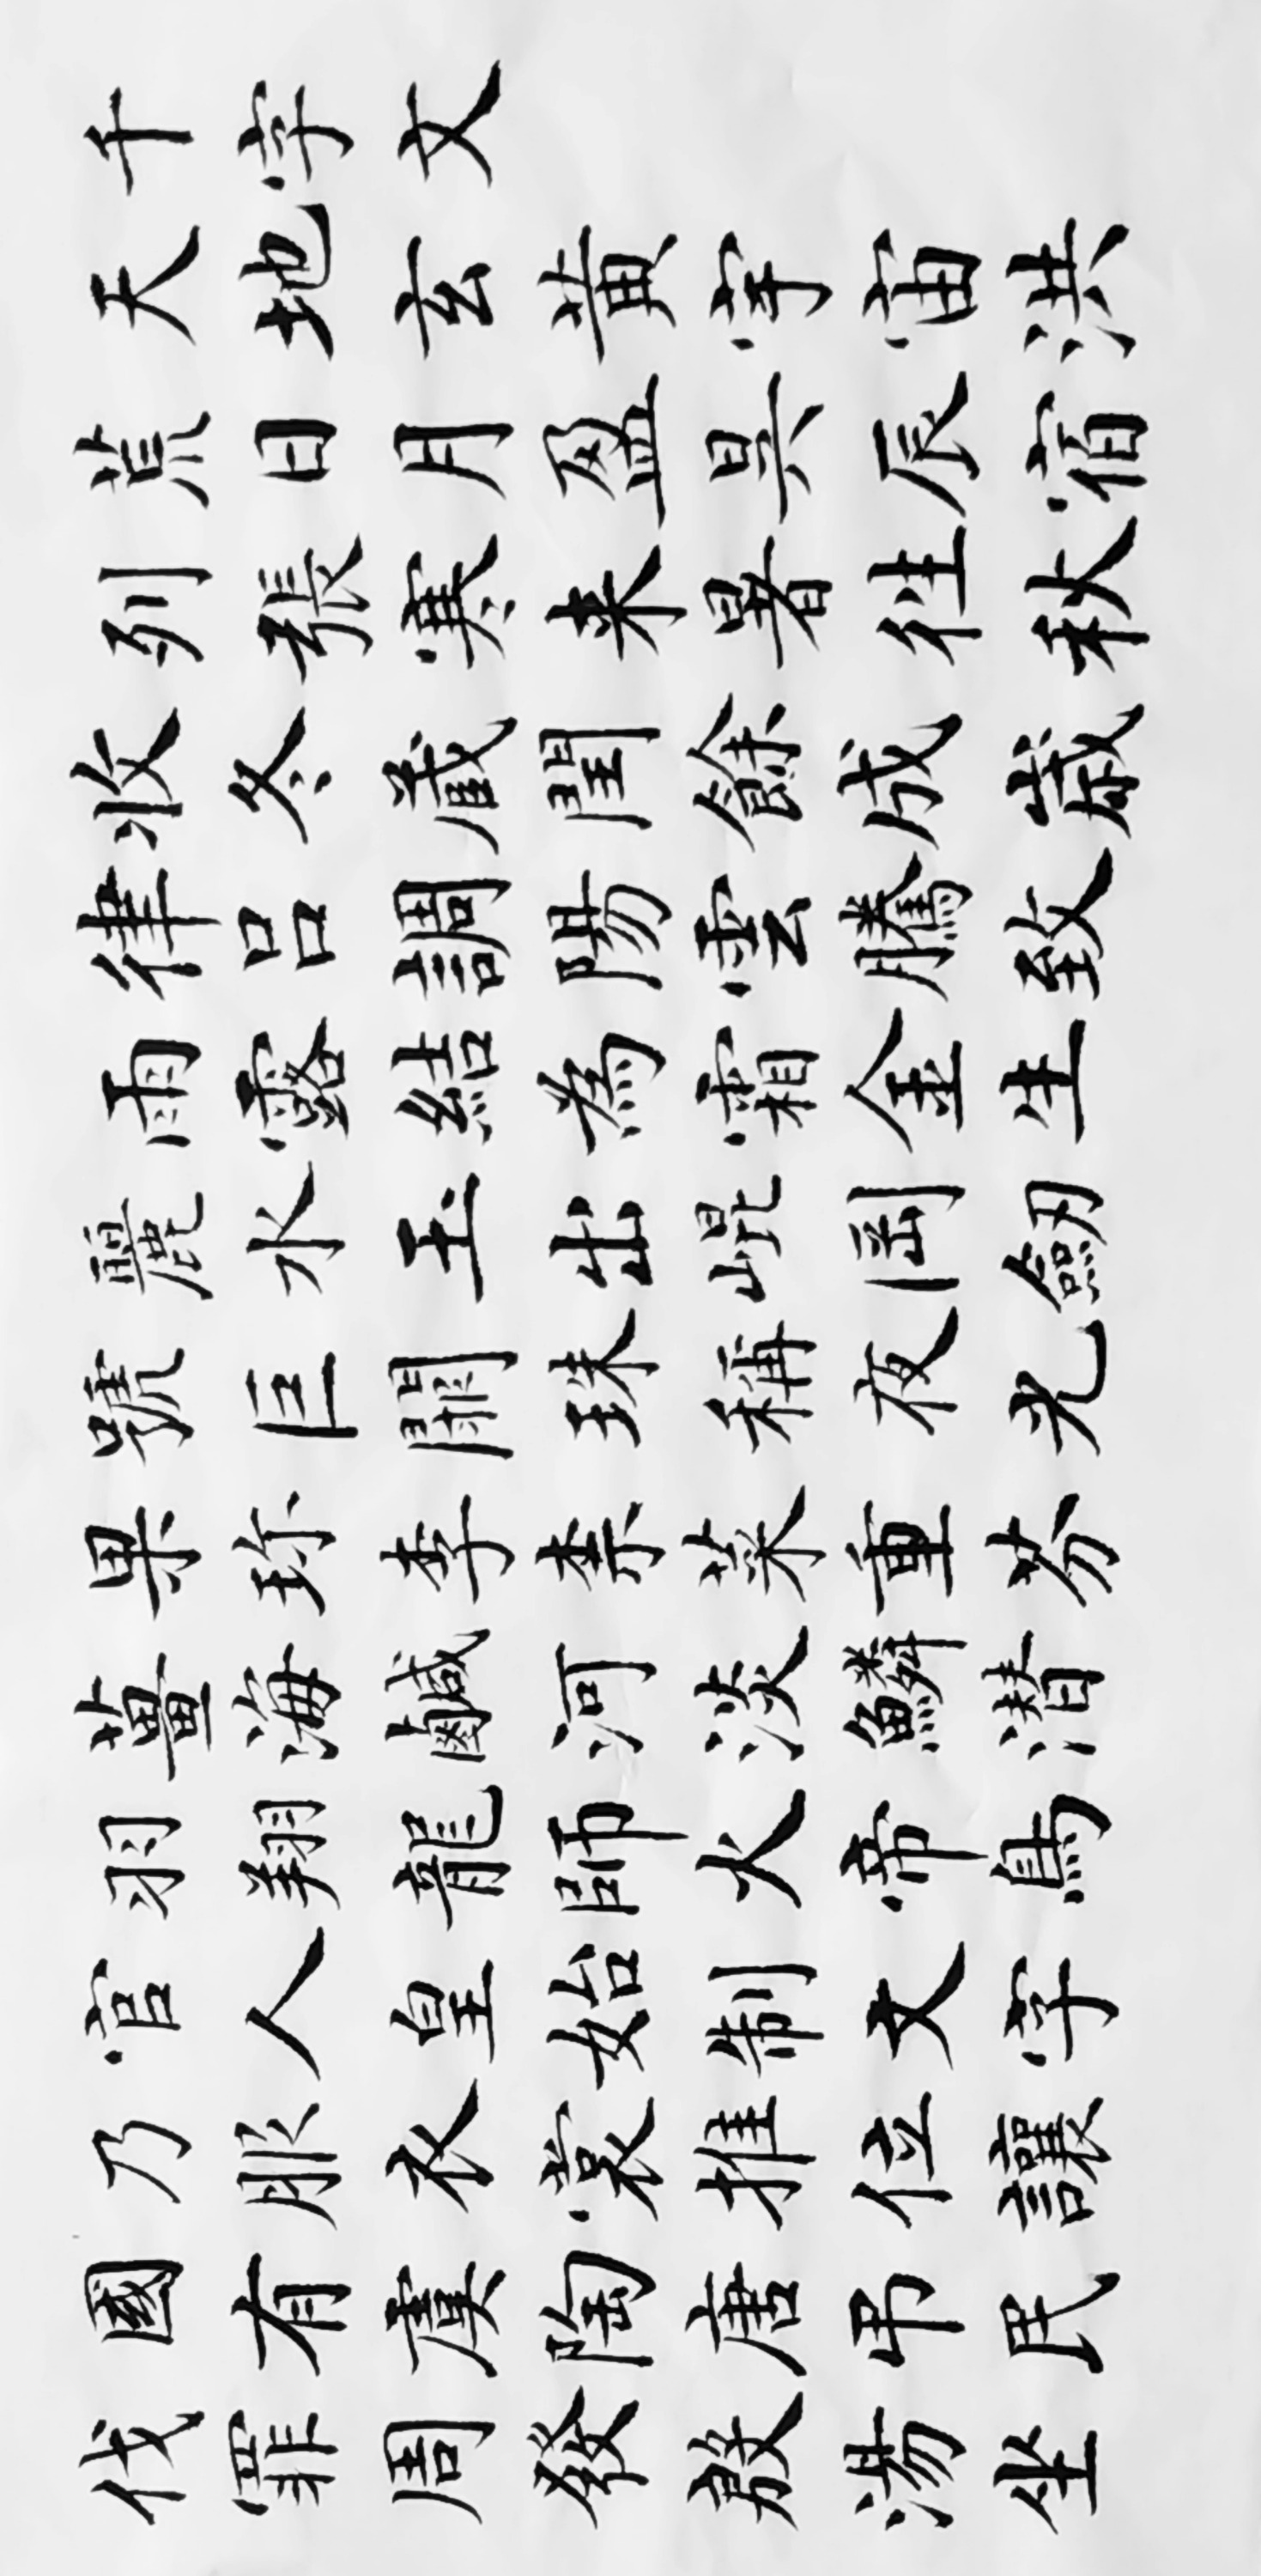 千字文
天地玄黄宇宙洪
荒日月盈昃辰宿
列張寒来暑往秋
收冬藏閏餘成歲
律呂調陽雲騰致
雨露結為霜金生
麗水玉出崐岡劒
號巨闕珠稱夜光
果珎李柰菜重芥
薑海鹹河淡鱗潜
羽翔龍師火帝鳥
官人皇始制文字
乃服衣裳推位讓
國有虞陶唐吊民
伐罪周發殷湯坐